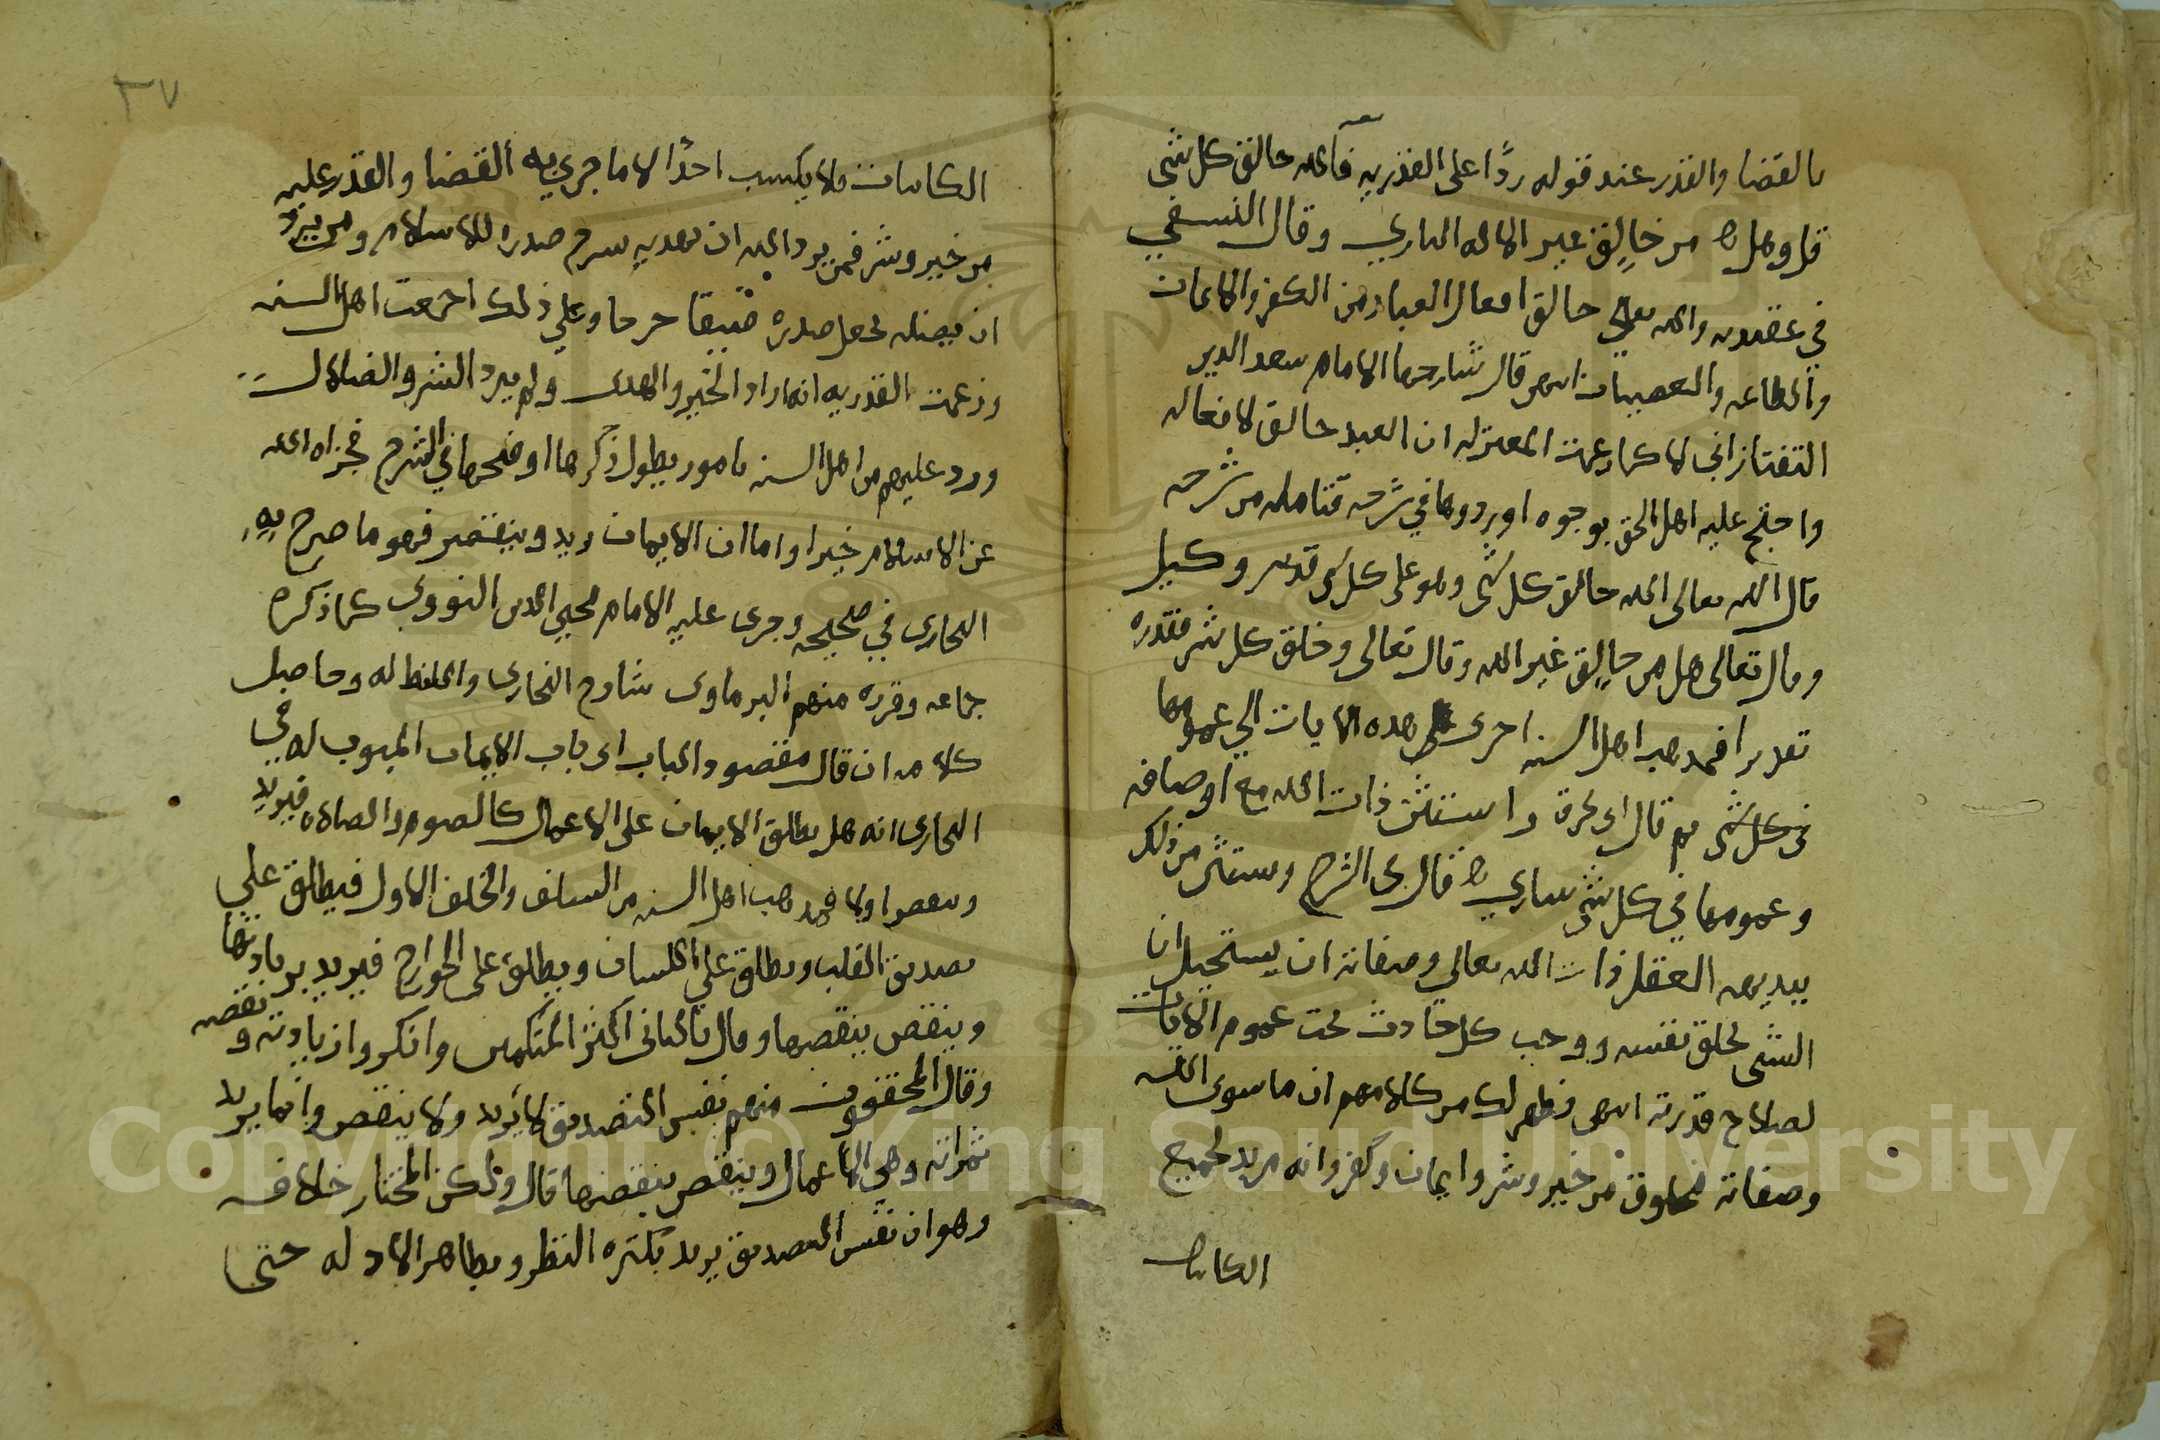 بالقضا والقدر عند قوله ردًا على القدريه فالله خالق كل شي
قل وهل من خالق غير الاله الباري وقال النسفي
في عقيدته والله تعالى خالق افعال العباد من الكفر والايمان
والطاعه والعصيان انتهى قال شارحها الامام سعد الدين
التفتازاني لا كما زعمت المعتزله ان العبد خالق لافعاله
واحتج عليه اهل الحق بوجوه اوردوها في شرحه فتأمله من شرحه
قال الله تعالى الله خالق كل شي وهو على كل شي قدير وكيل
وقال تعالى هل من خالق غير الله وقال تعالى وخلق كل شي فقدره
تقديرا فمذهب اهل السنه اجرى هذه الايات الي عمومها
في كل شي ثم قال واستثن ذات الله مع اوصافه
وعمومها في كل شي ساري قال في الشرح وستثنى من ذلك
ببديهه العقل ذات الله تعالى وصفاته ان يستحيل ان
الشي يخلق نفسه ووجب كل حادث تحت عموم الايات
لصلاح قدرته انتهى فظهر لك من كلامهم ان ما سوى الله
وصفاته مخلوق من خير وشر وايمان وكفر وانه مريد لجميع
الكاينات
٣٧
الكاينات فلا يكسب احدًا الا ما جرى به القضا والقدر عليه
من خير وشر فمن يرد الله ان يهديه يشرح صدره للاسلام ومن يرد
ان يضله يجعل صدره ضيقا حرجا وعلي ذلك اجمعت اهل السنه
وزعمت القدريه انه اراد الخير والهدى ولم يرد الشر والضلال
ورد عليهم من اهل السنه بامور يطول ذكرها اوضحها في الشرح فجزاه الله
عن الاسلام خيرا واما ان الايمان يزيد وينقص فهو ما صرح به
البخاري في صحيحه وجرى عليه الامام محيي الدين النووي كما ذكره
جماعه وقرره منهم البرماوى شارح البخارى واللفظ له وحاصل
كلامه ان قال مقصود الباب اى باب الايمان المبوب له في
البخارى انه هل يطلق الايمان على الاعمال كالصوم والصلاه فيزيد
وينقص اولا فمذهب اهل السنه من السلف والخلف الاول فيطلق علي
تصديق القلب ويطلق علي اللسان ويطلق على الجوارح فيزيد بزيادتها
وينقص بنقصها وقال بالثانى اكثر المتكلمين وانكروا زيادته ونقصه
وقال المحققون منهم نفس التصديق لا يزيد ولا ينقص وانما يزيد
ثمراته وهي الاعمال وينقص بنقصها قال ولكن المختار خلافه
وهو ان نفس التصديق يزيد بكثره النظر وبظاهر الادله حتى
Copyright © King Saud University